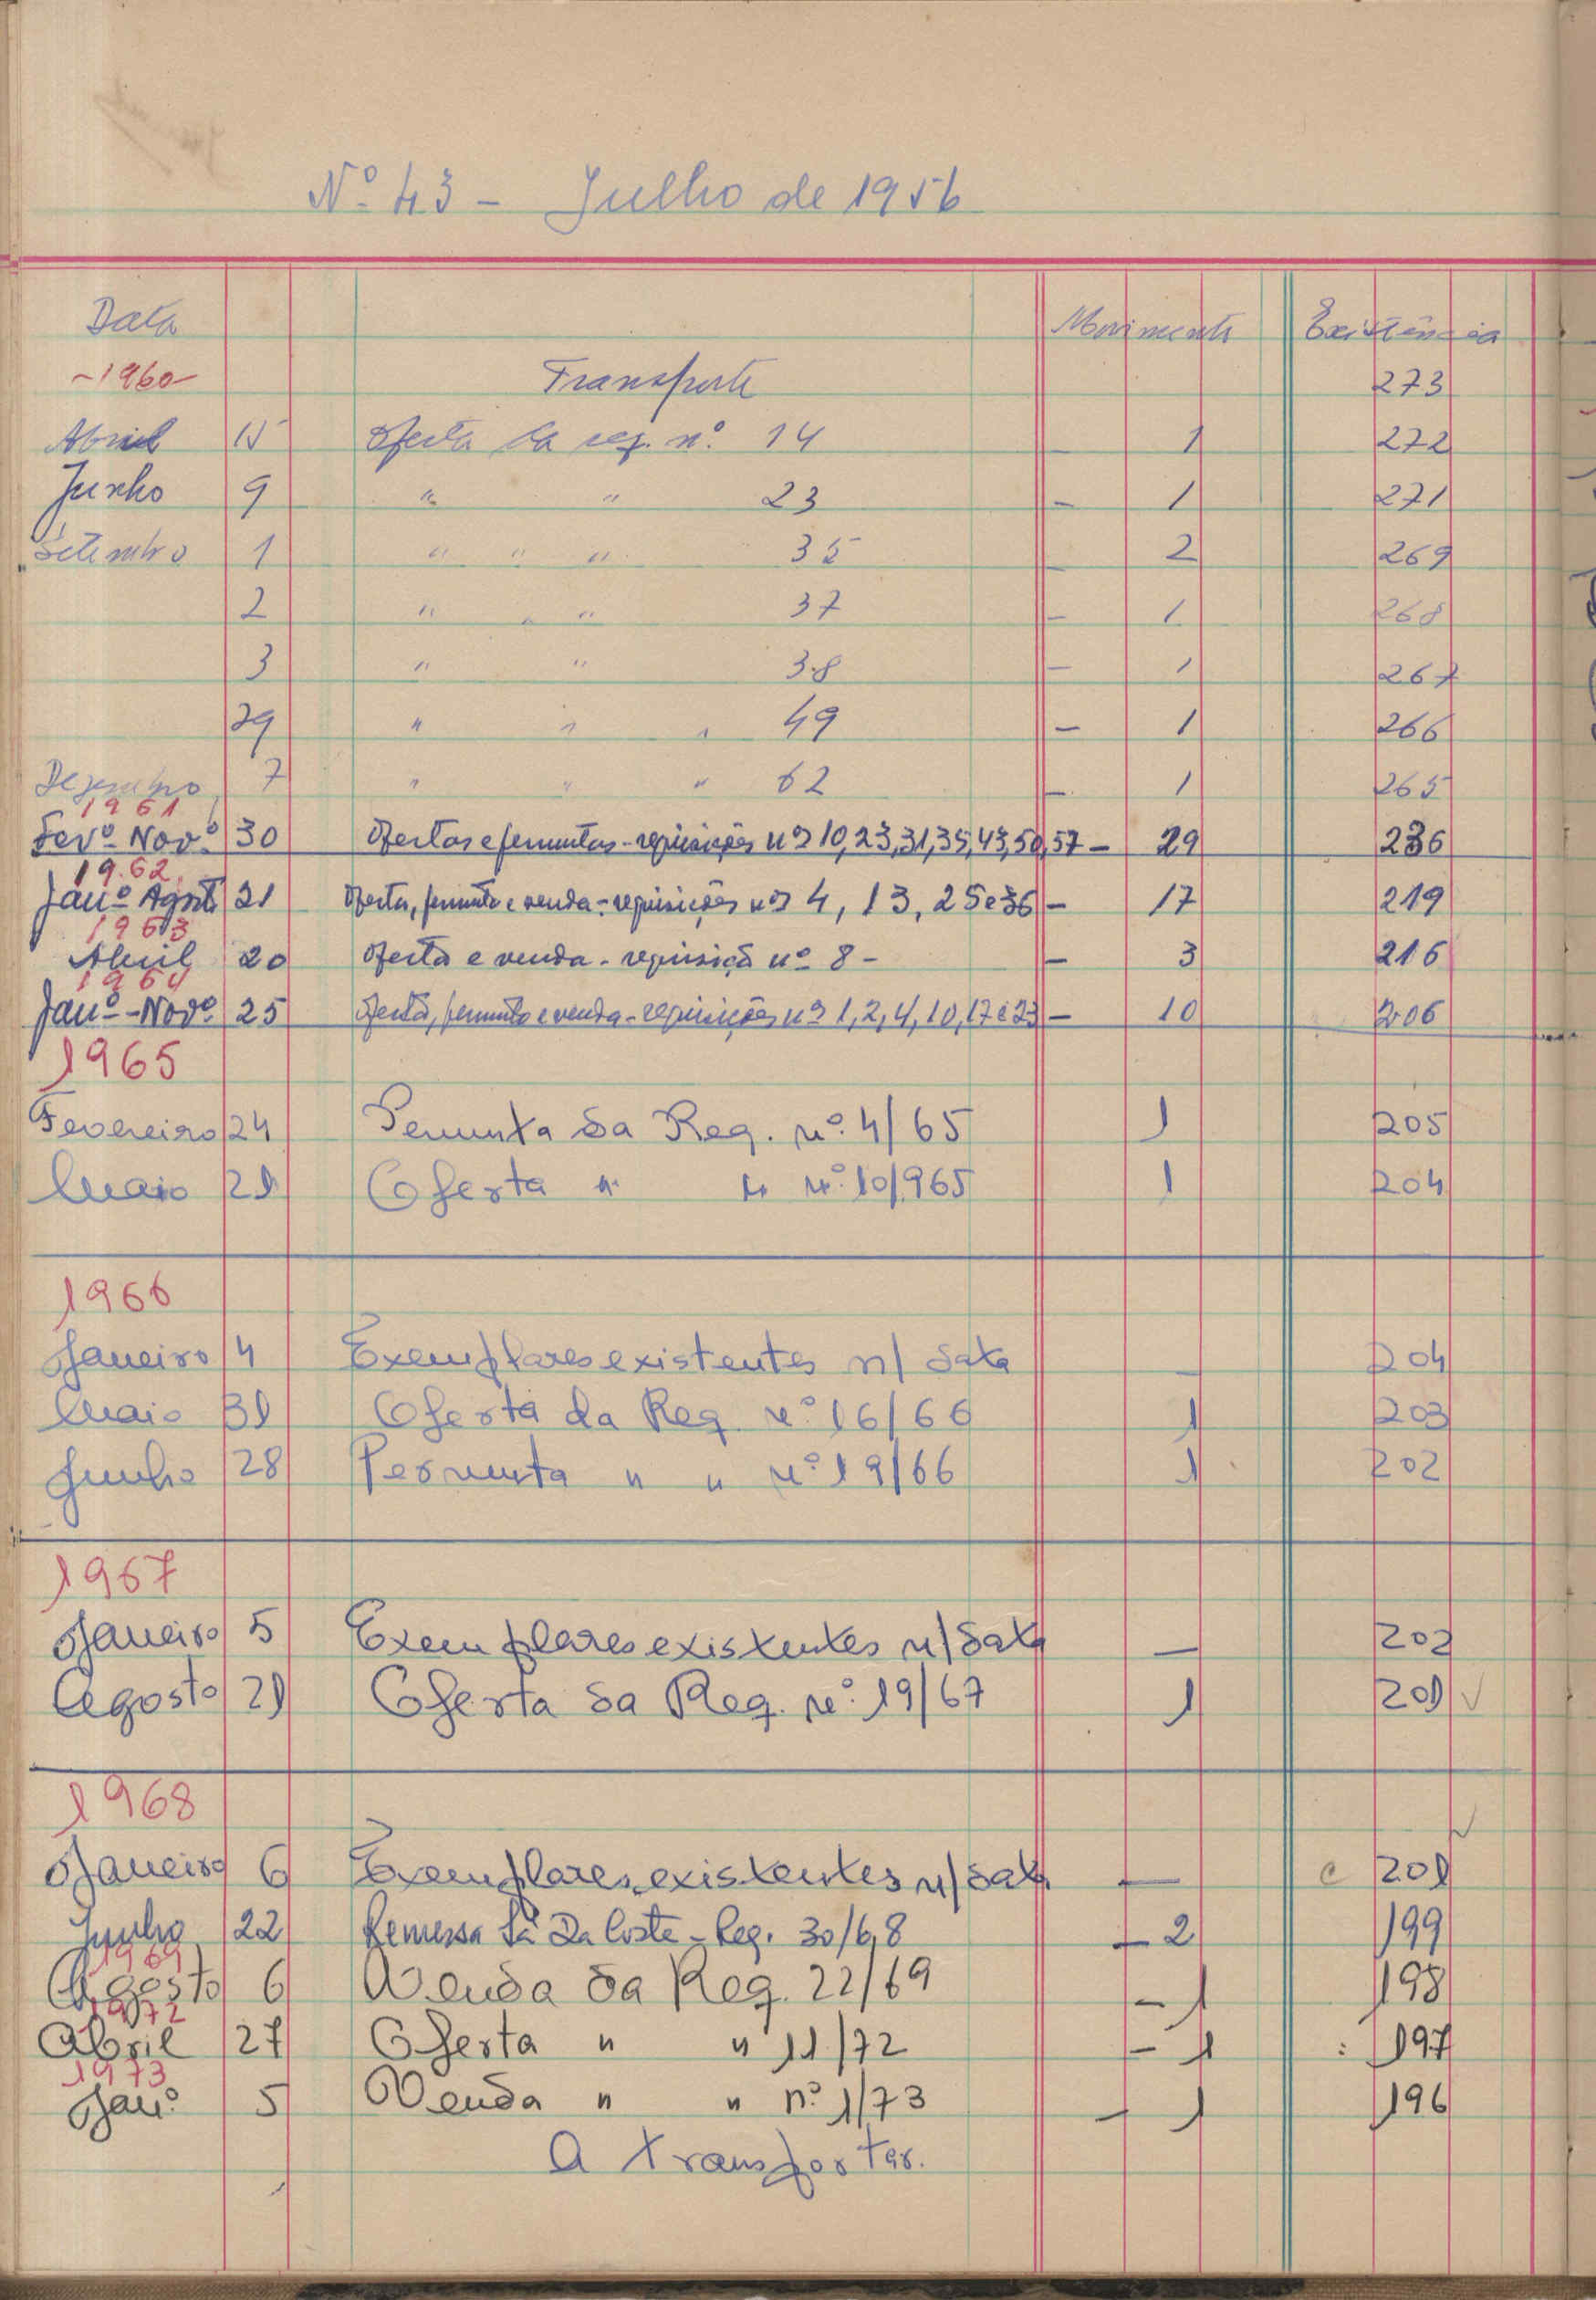 Nº 43 - Julho de 1956
Data Movimento Existência
-1960- Transporte 273
Abril 15 Oferta da req. nº 14 - 1 272
Junho 9 " " 23 - 1 271
Setembro 1 " " " 35 - 2 269
2 " " " 37 - 1 268
3 " " 38 - 1 267
29 " " " 49 - 1 266
Dezembro 7 " " " 62 - 1 265
1961
Fevº Novº 30 Ofertas e permutas - requisições nºs 10, 23, 31, 35, 43, 50, 57 - 29 236
1962
Janº Agosto 21 Oferta, permuta e venda - requisições nºs 4, 13, 25 e 36 - 17 219
1963
Abril 20 Oferta e venda - requisição nº 8 - - 3 216
1964
Janº - Novº 25 Oferta, permuta e venda - requisições nºs 1, 2, 4, 10, 17 e 23 - 10 206
1965
Fevereiro 24 Permuta da Req. nº 4/65 1 205
Maio 21 Oferta " " nº 10/965 1 204
1966
Janeiro 4 Exemplares existentes n/ data - 204
Maio 31 Oferta da Req. nº 16/66 1 203
Junho 28 Permuta " " nº 19/66 1 202
1967
Janeiro 5 Exemplares existentes n/ data - 202
Agosto 21 Oferta da Req. nº 19/67 1 201 ✓
1968
Janeiro 6 Exemplares existentes n/ data - c 201 ✓
Junho 22 Remessa Sá Da Costa - Req. 30/68 - 2 199
1969
Agosto 6 Venda da Req. 22/69 - 1 198
1972
Abril 27 Oferta " " 11/72 - 1 197
1973
Janº 5 Venda " " nº 1/73 - 1 196
A transportar.